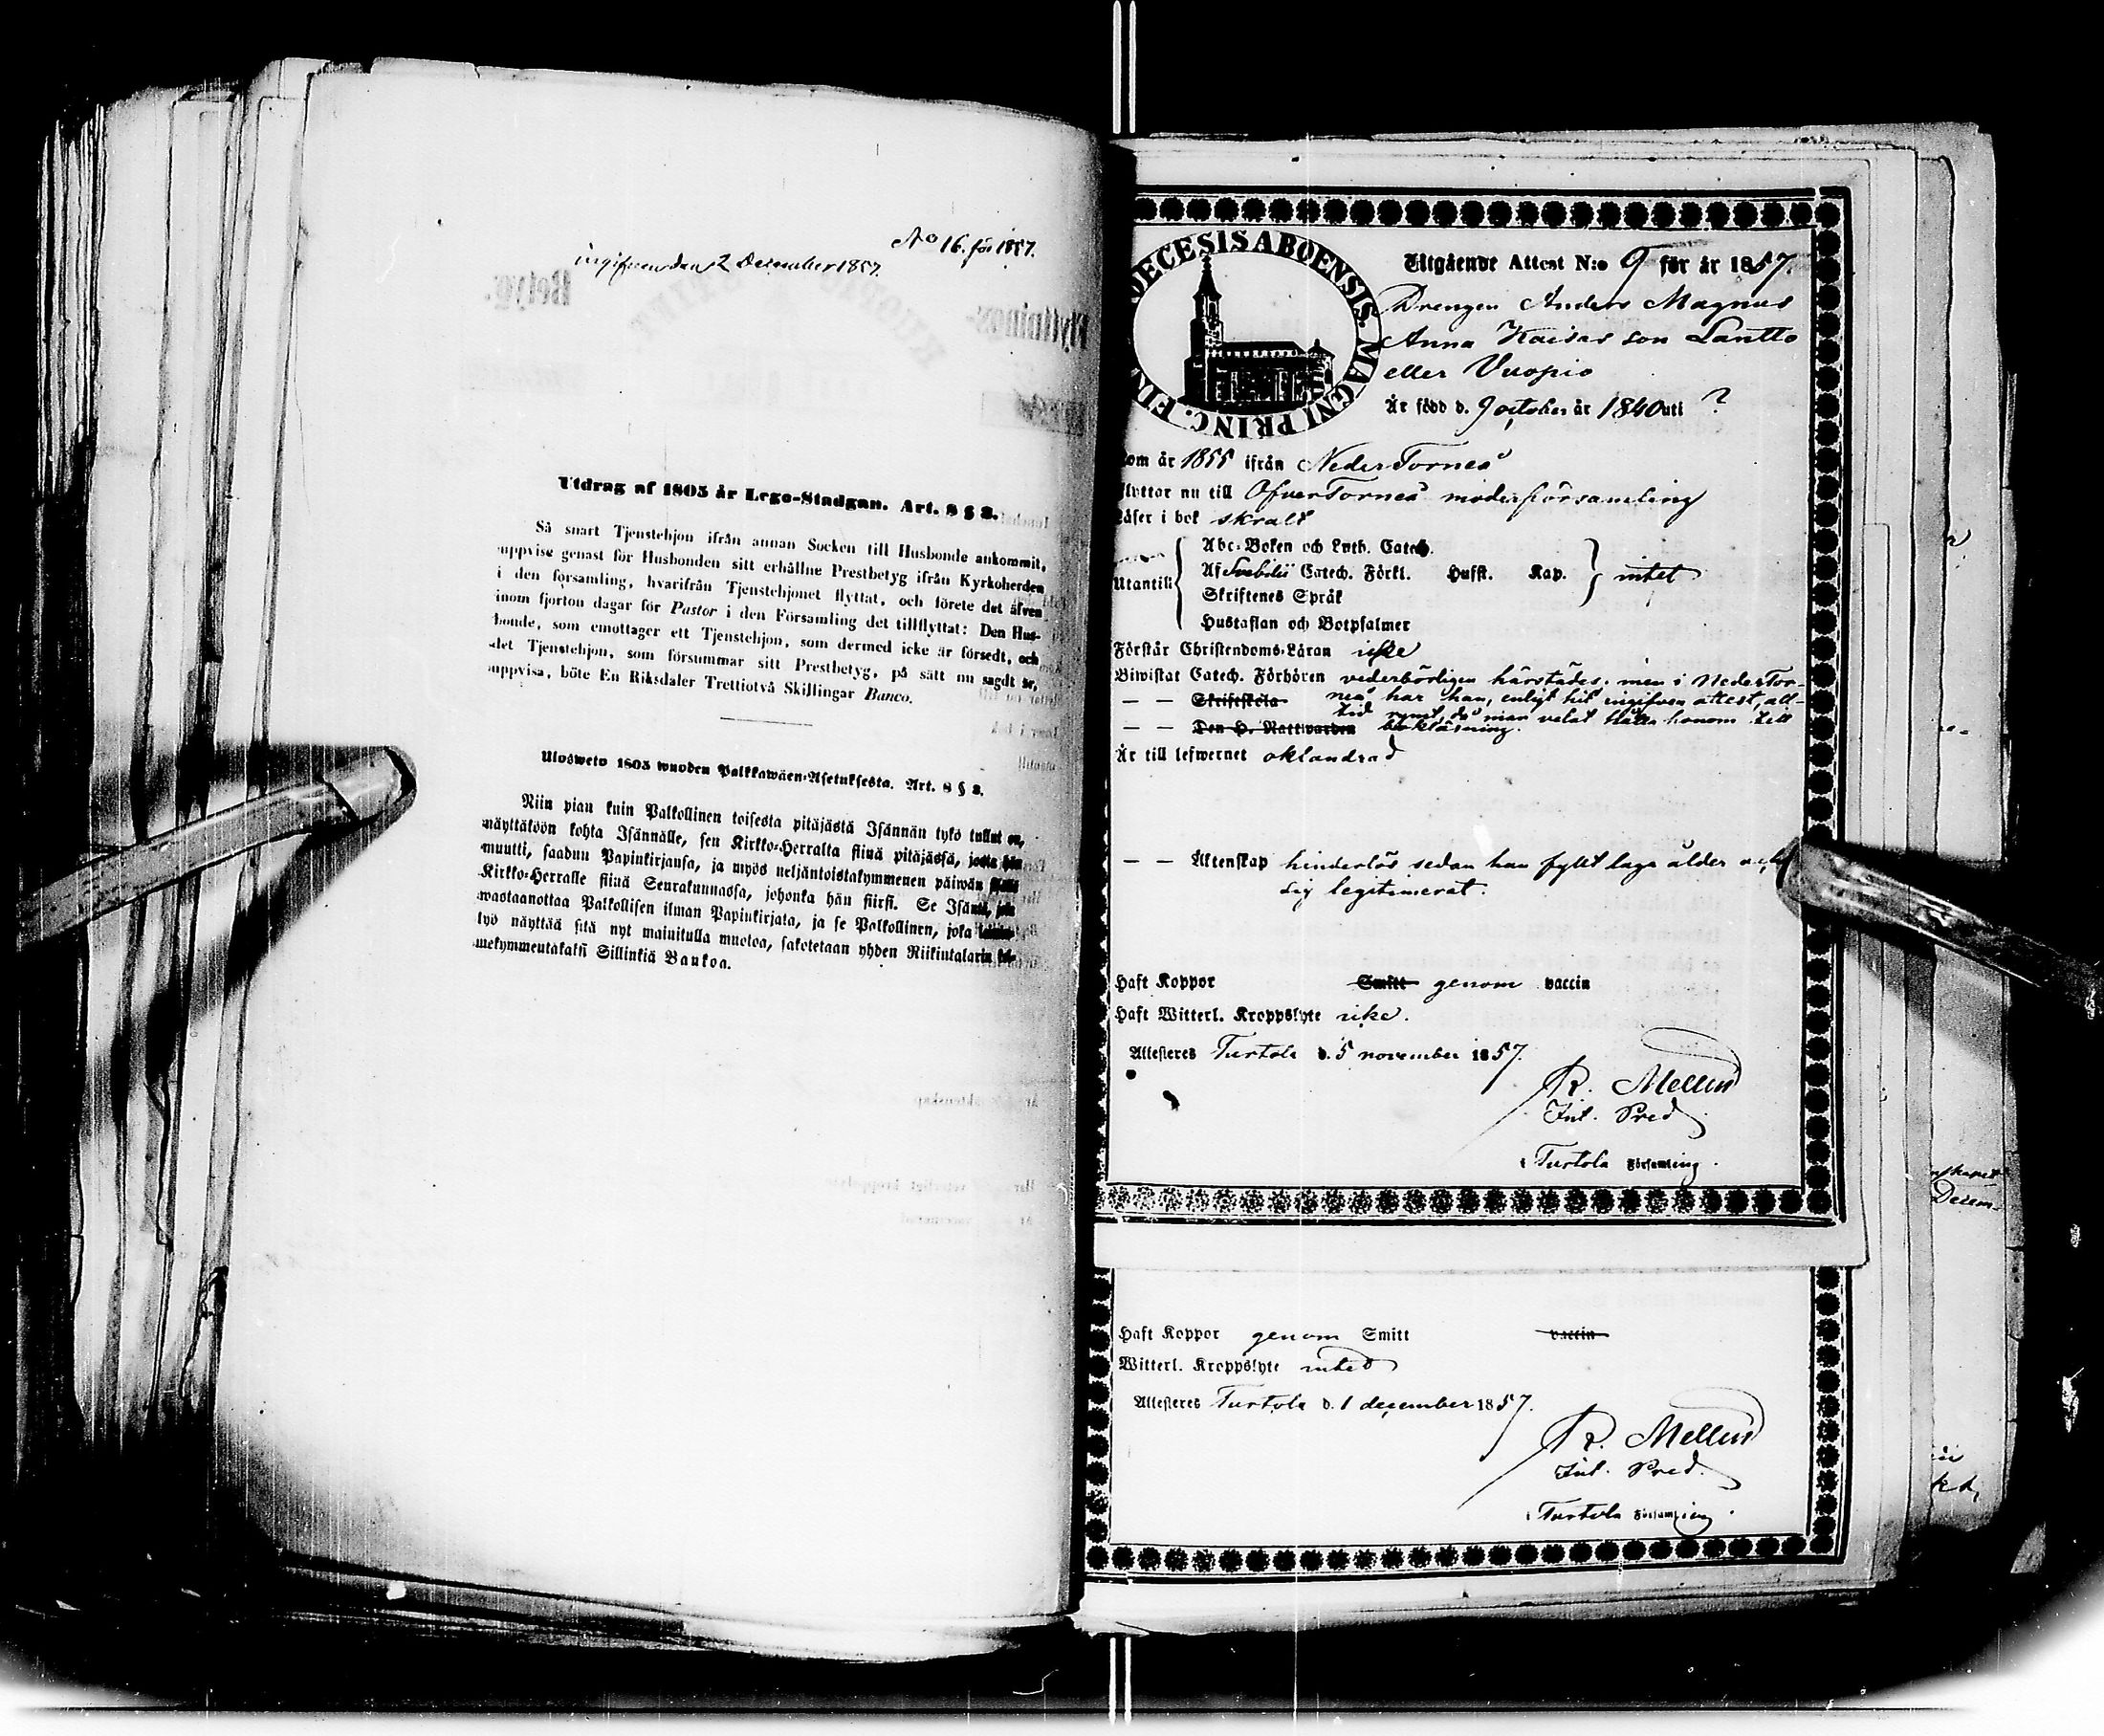 No 16. för 1857.
ingifven den 2 December 1857.
Utdrag af 1805 år Lego-Stadgan. Art. 8 § 2.
Så snart Tjenstehjon ifrån annan Socken till Husbonde ankommit,
uppvise genast för Husbonden sitt erhållne Prestbetyg ifrån Kyrkoherden
i den församling, hvarifrån Tjenstehjonet flyttat, och förete det äfven
inom fjorton dagar för Pastor i den Församling det tillflyttat: Den Hus-
bonde, som emottager ett Tjenstehjon, som dermed icke är försedt, och
det Tjenstehjon, som försummar sitt Prestbetyg, på sätt nu sagdt är,
uppvisa, böte En Riksdaler Trettiotvå Skillingar Banco.
Ulosweto 1805 wuoden Palkkawäen-Asetuksesta. Art. 8 § 2.
Niin pian kuin Palkollinen toisesta pitäjästä Isännän tykö tullut on,
näyttäköön kohta Isännälle, sen Kirkko-Herralta siinä pitäjässä, josta hän
muutti, saadun Papinkirjansa, ja myös neljäntoistakymmenen päiwän
Kirkko-Herralle siinä Seurakunnassa, johonka hän siirsi. Se Isäntä, joka
wastaanottaa Palkollisen ilman Papinkirjata, ja se Palkollinen, joka
työ näyttää sitä nyt mainitulla muotoa, sakotetaan yhden Riikintalarin kol-
mekymmentäkaksi Sillinkiä Bankoa.
DECESIS ABOENSIS. MAGNI PRINC. FIN
Utgående Attest N:o 9 för år 1857.
Drengen Anders Magnus
Anna Kaisas son Lantto
eller Vuopio
Är född d. 9 october år 1840 uti ?
om år 1855 ifrån Neder Torneå
lyttar nu till Öfver Torneå moderförsamling
äser i bok skralt
Abc-Boken och Luth. Catech.
Utantill Af Svebilii Catech. Förkl. Hufst. Kap. intet
Skriftenes Språk
Hustaflan och Botpsalmer
Förstår Christendoms-Läran icke
Biwistat Catech. Förhören vederbörligen härstädes. men i Neder Tor-
— — Skriftskola neå har han, enligt hit ingifven attest, all-
tid rymt, då man velat hålla honom till
— — Den H. Nattwarden bokläsning.
Är till lefwernet oklandrad
— — Äktenskap hinderlös sedan han fyllt laga ålder och
sig legitimerat.
Haft Koppor Smitt genom vaccin
Haft Witterl. Kroppslyte icke.
Attesteres Turtola d. 5 november 1857.
R. Mellin
Int. Pred
i Turtola Församling.
Haft Koppor genom Smitt vaccin
Witterl. Kroppslyte inted
Attesteres Turtola d. 1 december 1857.
R. Mellin
Int. Pred.
i Turtola Församling.